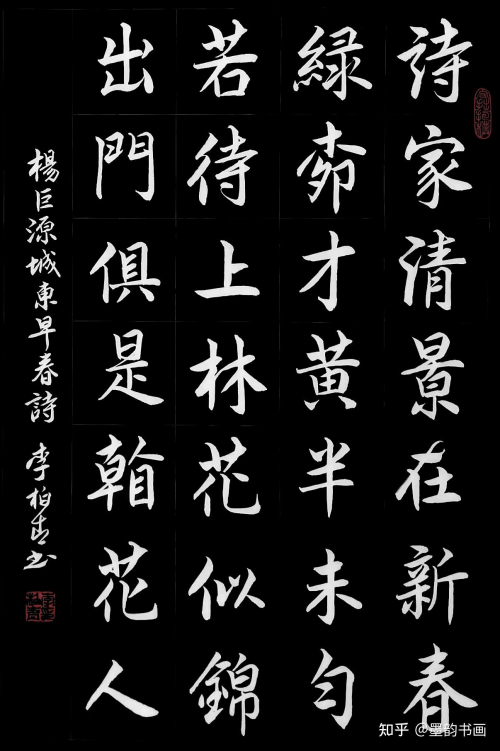 詩家清景在新春
緑柳才黄半未匀
若待上林花似錦
出門俱是看花人
楊巨源城東早春詩 李柏青书
知乎 @墨韵书画